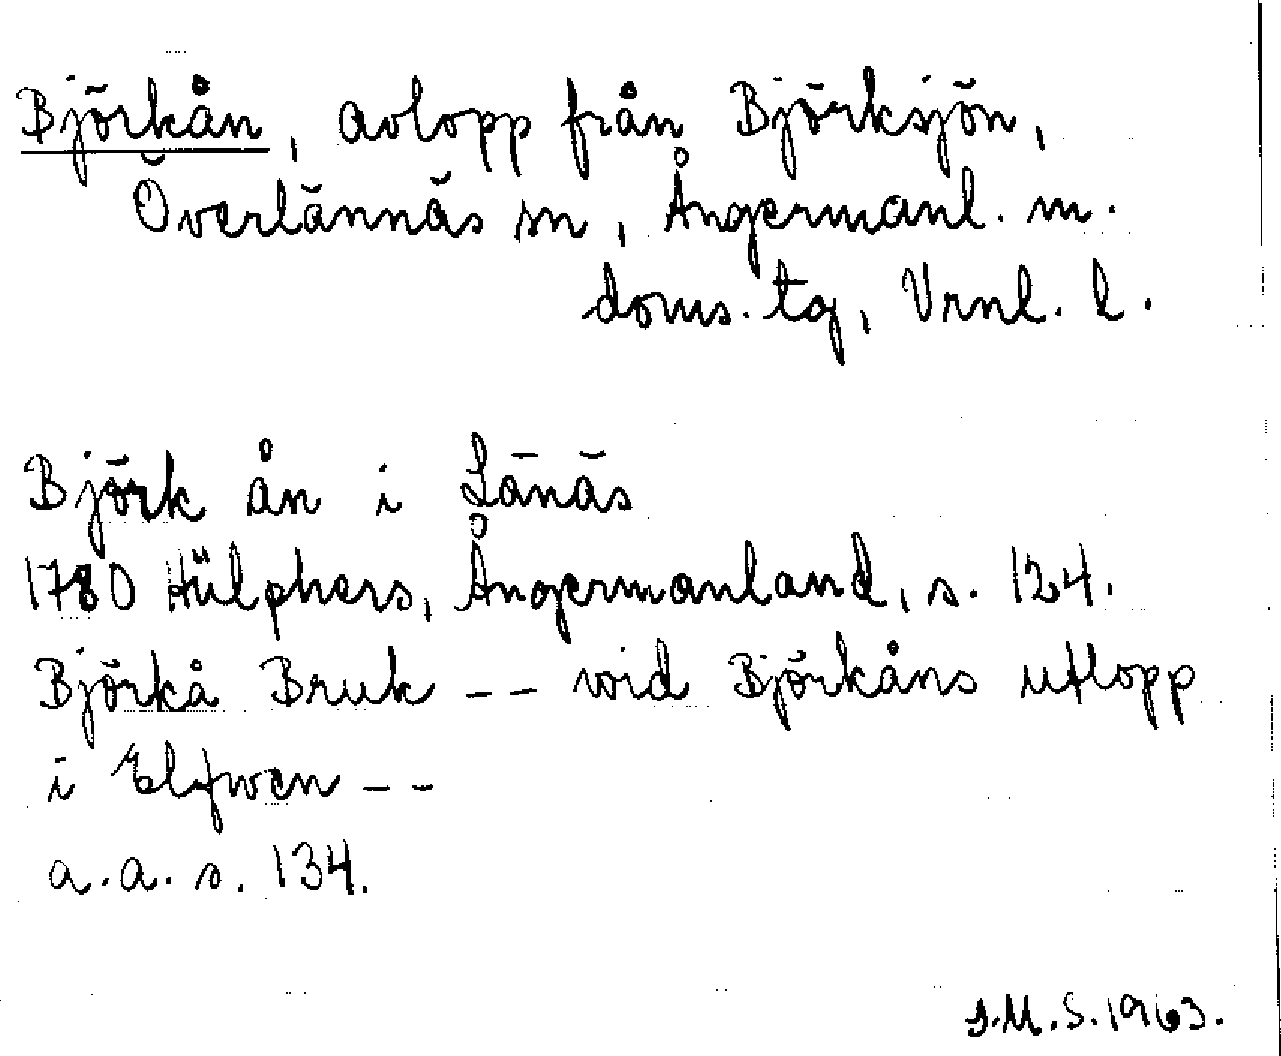 Björkån, avlopp från Björksjön,
Överlännäs sn, Ångermanl. m.
doms. tg, Vrnl. l.
Björk ån i Länäs
1780 Hülphers, Ångermanland, s. 124.
Björkå Bruk -- wid Björkåns utlopp
i Elfwen --
a.a. s. 134.
J.M.S. 1963.